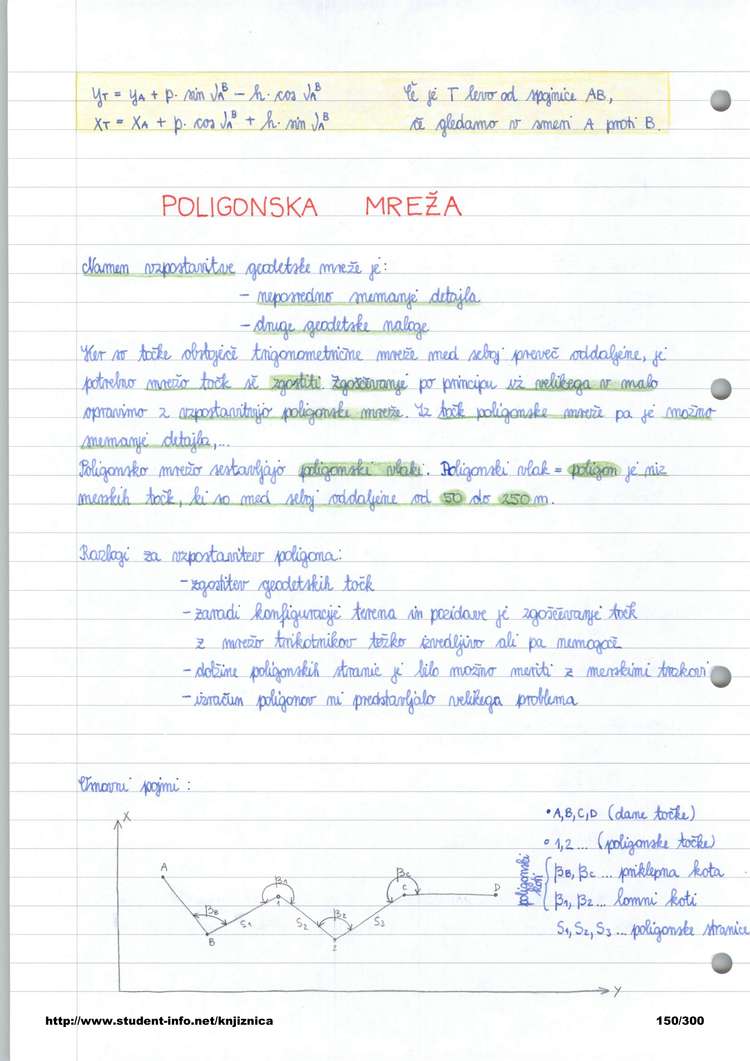 yT = yA + p · sin νA^B − h · cos νA^B Če je T levo od spojnice AB,
xT = xA + p · cos νA^B + h · sin νA^B če gledamo v smeri A proti B.
POLIGONSKA MREŽA
Namen vzpostavitve geodetske mreže je:
- neposredno snemanje detajla
- druge geodetske naloge
Ker so točke obstoječe trigonometrične mreže med seboj preveč oddaljene, je
potrebno mrežo točk še zgostiti. Zgoščevanje po principu iz velikega v malo
opravimo z vzpostavitvijo poligonske mreže. Iz točk poligonske mreže pa je možno
snemanje detajla,...
Poligonsko mrežo sestavljajo poligonski vlaki. Poligonski vlak = poligon je niz
merskih točk, ki so med seboj oddaljene od 50 do 250 m.
Razlogi za vzpostavitev poligona:
- zgostitev geodetskih točk
- zaradi konfiguracije terena in pozidave je zgoščevanje točk
z mrežo trikotnikov težko izvedljivo ali pa nemogoče
- dolžine poligonskih stranic je bilo možno meriti z merskimi trakovi
- izračun poligonov ni predstavljalo velikega problema
Osnovni pojmi:
• A,B,C,D (dane točke)
∘ 1,2 ... (poligonske točke)
poligonski koti
βB, βC ... priklepna kota
β1, β2 ... lomni koti
S1, S2, S3 ... poligonske stranice
X
A
βB
B
S1
β1
1
S2
β2
2
S3
βC
C
D
Y
http://www.student-info.net/knjiznica 150/300